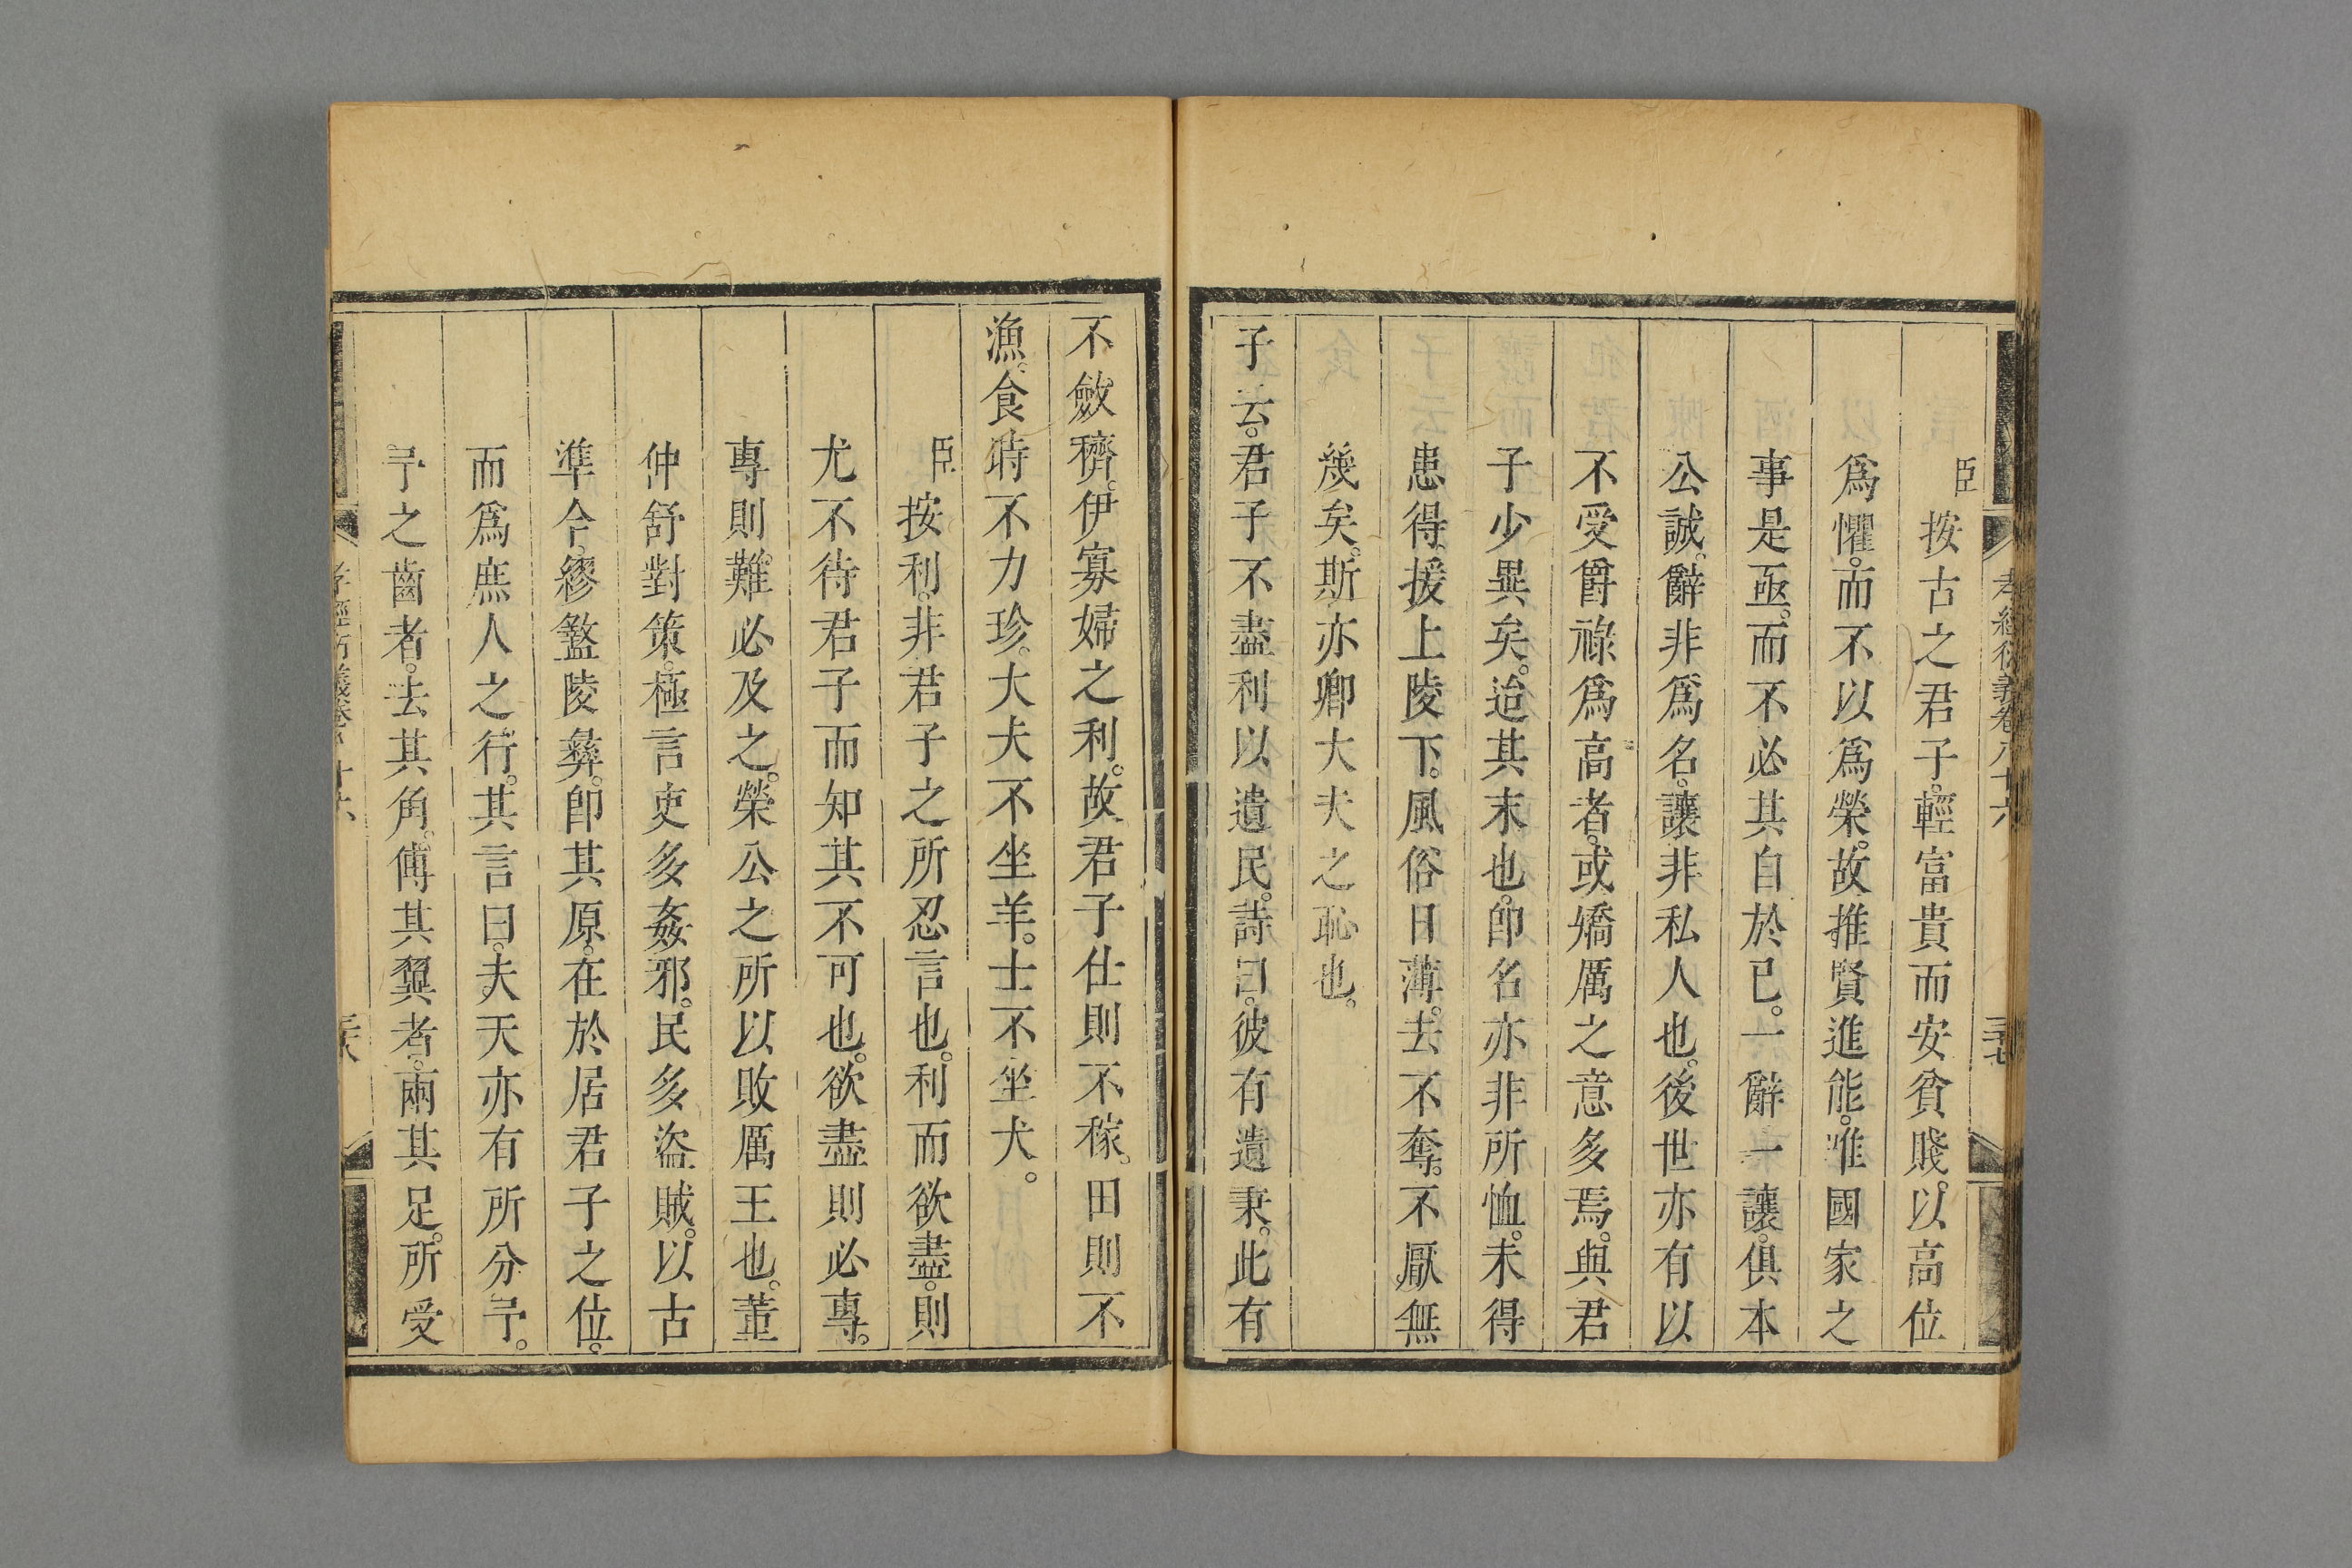 孝經衍義卷八十六
三十七
臣按古之君子。輕富貴而安貧賤。以高位
爲懼。而不以爲榮。故推賢進能。惟國家之
事是亟。而不必其自於已。一辭一讓。俱本
公誠。辭非爲名。讓非私人也。後世亦有以
不受爵祿爲高者。或嬌厲之意多焉。與君
子少異矣。迨其末也。卽名亦非所恤。未得
患得。援上陵下。風俗日薄。去不奪。不厭無
幾矣。斯亦卿大夫之恥也。
子云。君子不盡利以遺民。詩曰。彼有遺秉。此有
不斂穧。伊寡婦之利。故君子仕則不稼。田則不
漁。食時不力珍。大夫不坐羊。士不坐犬。
臣按利。非君子之所忍言也。利而欲盡。則
尤不待君子而知其不可也。欲盡則必專。
專則難必及之。榮公之所以敗厲王也。董
仲舒對策。極言吏多姦邪。民多盜賊。以古
準今。繆盭陵彝。卽其原。在於居君子之位。
而爲庶人之行。其言曰。夫天亦有所分予。
予之齒者。去其角。傅其翼者。兩其足。所受
孝經衍義卷八十六
三十八